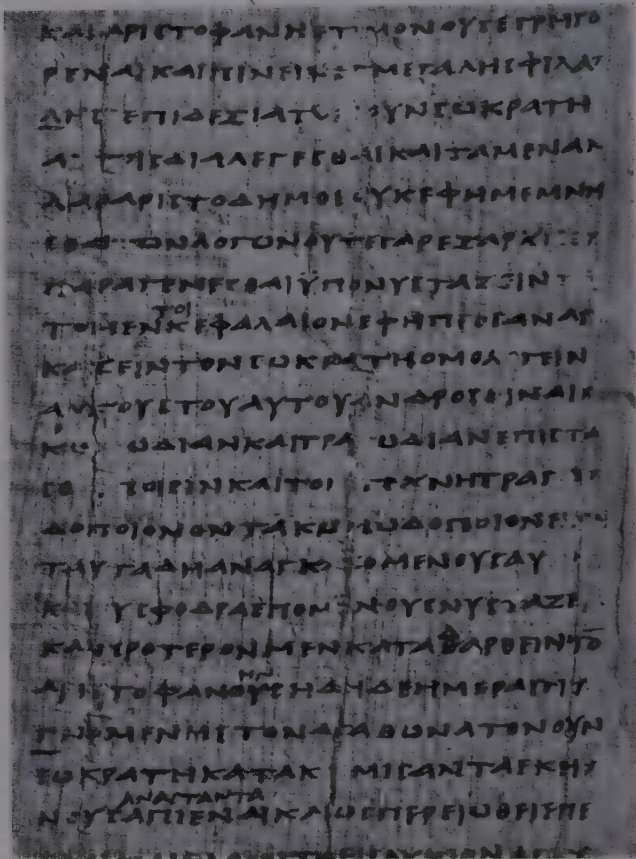 ΚΑΙ ΑΡΙϹΤΟΦΑΝΗ ΕΤΙ ΜΟΝΟΥϹ ΕΓΡΗΓΟ
ΡΕΝΑΙ ΚΑΙ ΠΙΝΕΙΝ ΜΕΓΑΛΗϹ ΦΙΛΑ
ΛΗϹ ΕΠΙ ΔΕΞΙΑ ΟΥΝ ϹΩΚΡΑΤΗ
ΔΙΑΛΕΓΕϹΘΑΙ ΚΑΙ ΤΑ ΜΕΝ ΑΛ
ΛΑ Ο ΑΡΙϹΤΟΔΗΜΟϹ ΟΥΚ ΕΦΗ ΜΕΜΝΗ
ϹΘΑΙ ΤΩΝ ΛΟΓΩΝ ΟΥΤΕ ΓΑΡ ΕΞ ΑΡΧΗϹ
ΠΑΡΑΓΕΝΕϹΘΑΙ ΥΠΟΝΥϹΤΑΖΕΙΝ
ΤΟΙ
ΤΟ ΜΕΝ ΚΕΦΑΛΑΙΟΝ ΕΦΗ ΠΡΟϹΑΝΑΓ
ΚΑΖΕΙΝ ΤΟΝ ϹΩΚΡΑΤΗ ΟΜΟΛΟΓΕΙΝ
ΑΥΤΟΥϹ ΤΟΥ ΑΥΤΟΥ ΑΝΔΡΟϹ ΕΙΝΑΙ
ΚΩΜΩΔΙΑΝ ΚΑΙ ΤΡΑΓΩΔΙΑΝ ΕΠΙϹΤΑ
ϹΘΑΙ ΠΟΙΕΙΝ ΚΑΙ ΤΟΝ ΤΕΧΝΗ ΤΡΑΓΩ
ΔΟΠΟΙΟΝ ΟΝΤΑ ΚΩΜΩΔΟΠΟΙΟΝ
ΤΑΥΤΑ ΔΗ ΑΝΑΓΚΑΖΟΜΕΝΟΥϹ ΑΥ
ϹΦΟΔΡΑ ΕΠΟΜΕΝΟΥϹ ΝΥϹΤΑΖΕΙΝ
ΚΑΙ ΠΡΟΤΕΡΟΝ ΜΕΝ ΚΑΤΑΔΑΡΘΕΙΝ ΤΟ
ΗΝ
ΑΡΙϹΤΟΦΑΝΟΥϹ ΗΔΗ ΔΕ ΗΜΕΡΑϹ ΓΙΓ
ΝΟΜΕΝΗϹ ΤΟΝ ΑΓΑΘΩΝΑ ΤΟΝ ΟΥΝ
ϹΩΚΡΑΤΗ ΚΑΤΑΚΟΙΜΙϹΑΝΤΑ ΕΚΕΙ
ΑΝΑϹΤΑΝΤΑ
ΝΟΥϹ ΑΠΙΕΝΑΙ ΚΑΙ ΩϹΠΕΡ ΕΙΩΘΕΙ ΕΠΕ